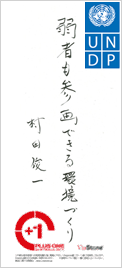 U N
D P
弱者も参画できる環境づくり
村田俊一
+1
PLUS ONE